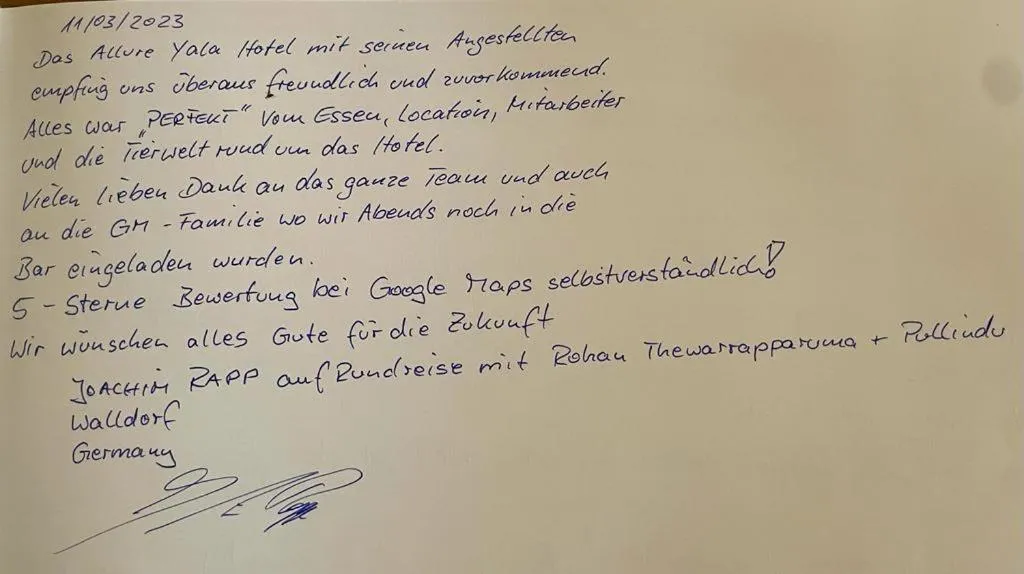 11/03/2023
Das Allure Yala Hotel mit seinen Angestellten
empfing uns überaus freundlich und zuvorkommend.
Alles war „PERFEKT" vom Essen, Location, Mitarbeiter
und die Tierwelt rund um das Hotel.
Vielen lieben Dank an das ganze Team und auch
an die GM-Familie wo wir Abends noch in die
Bar eingeladen wurden.
5-Sterne Bewertung bei Google Maps selbstverständlich!
Wir wünschen alles Gute für die Zukunft
JOACHIM RAPP auf Rundreise mit Rohan Thewarrapparuma + Pullindu
Walldorf
Germany